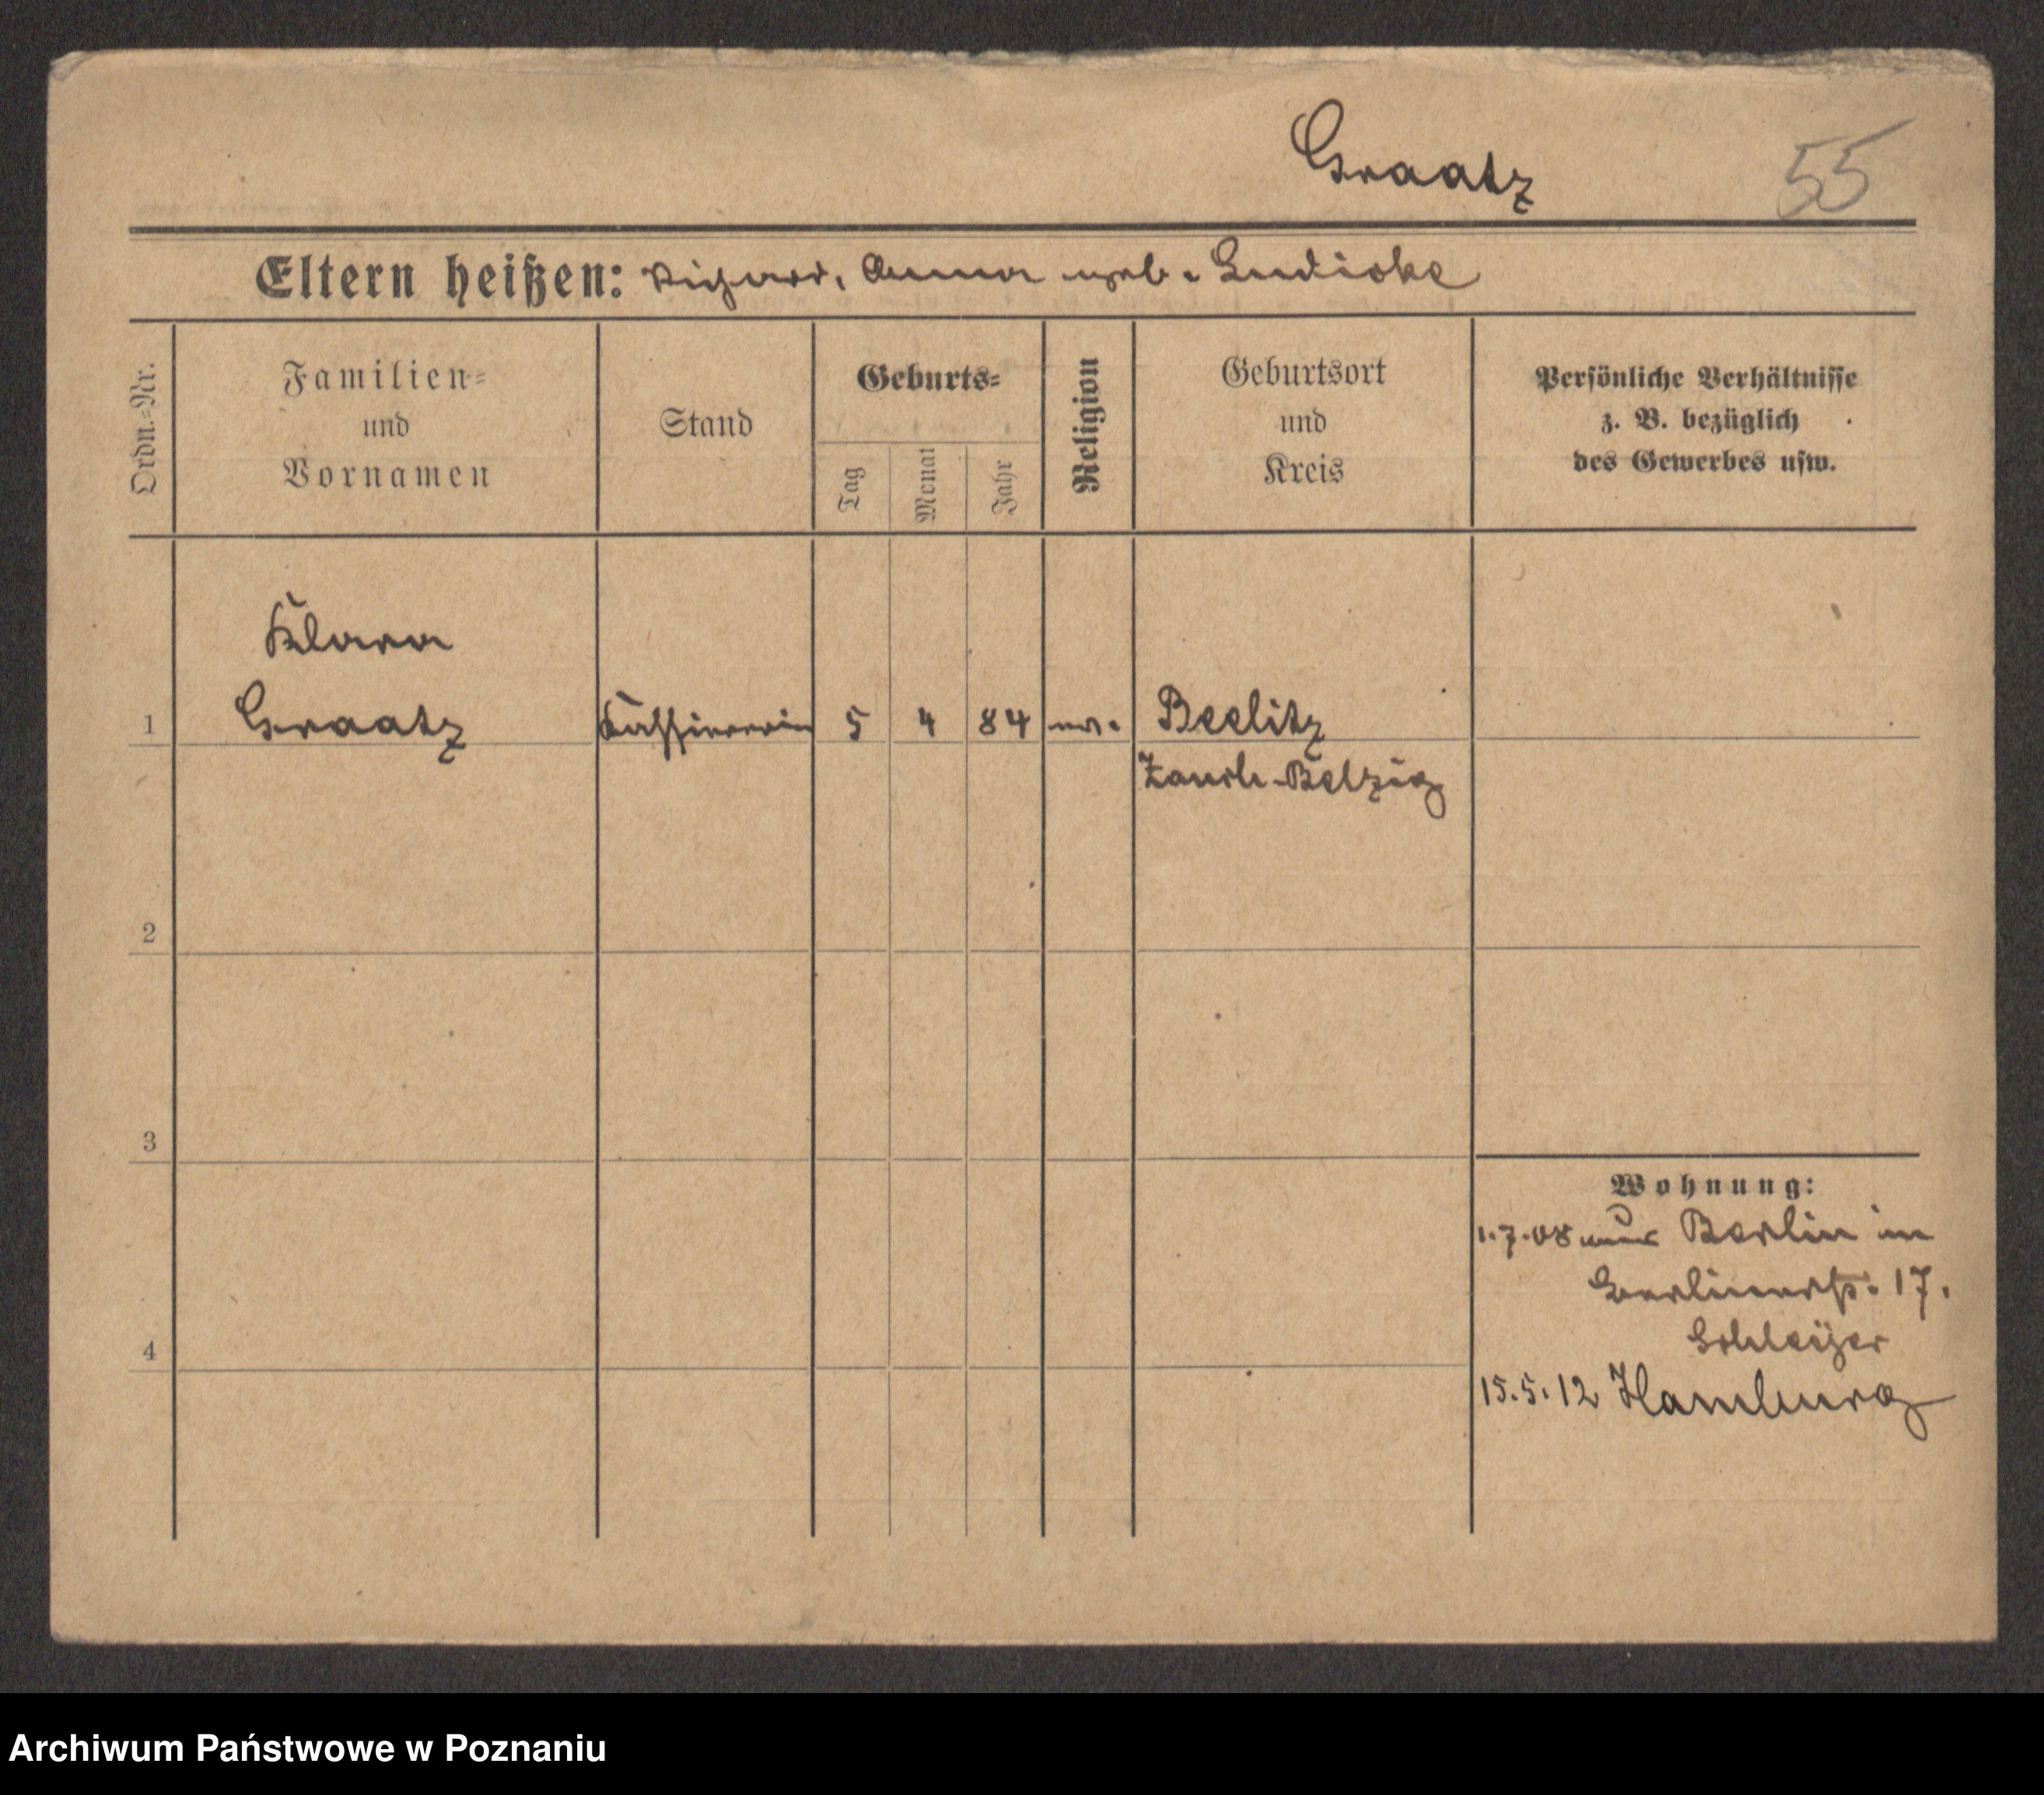 Graatz 55
Eltern heißen: Richard, Anna geb. Ludicke
Ordn.-Nr.
Familien-
und
Vornamen
Stand
Geburts-
Tag
Monat
Jahr
Religion
Geburtsort
und
Kreis
Persönliche Verhältnisse
z. B. bezüglich
des Gewerbes usw.
Klara
1 Graatz Kassiererin 5 4 84 ev. Beelitz
Zauch-Belzig
2
3
Wohnung:
1.7.08 aus Berlin in
Berlinerstr. 17.
4
15.5.12 Hamburg
Archiwum Państwowe w Poznaniu